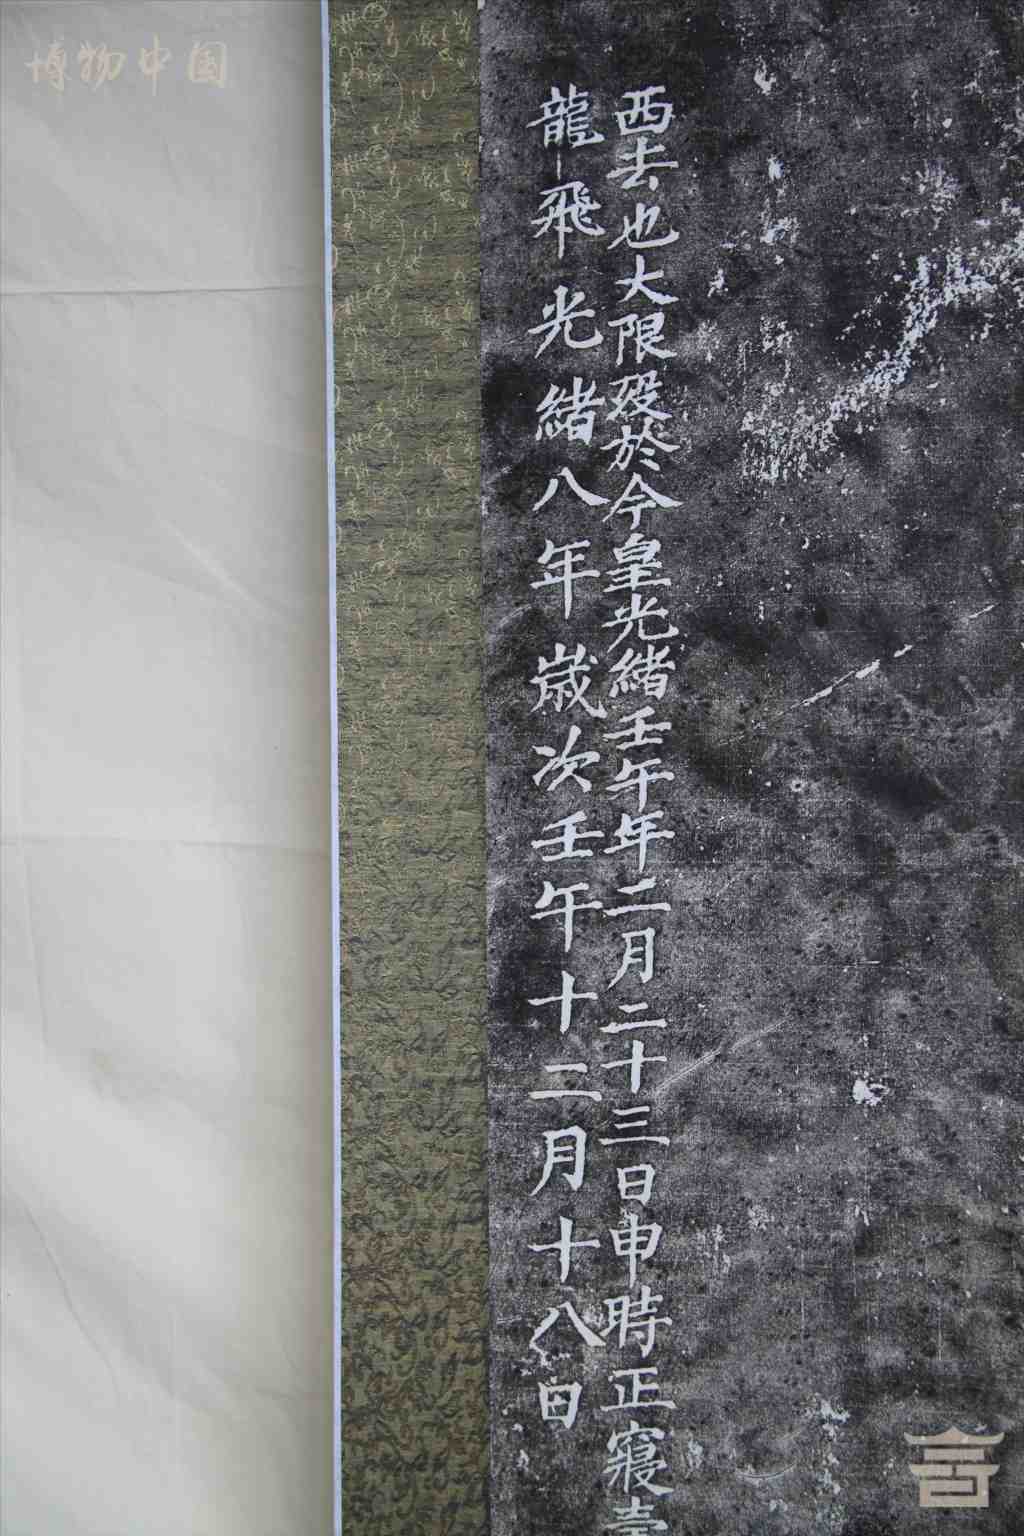 西去也大限歿於今皇光緒壬午年二月二十三日申時正寢壹
龍飛光緒八年歲次壬午十二月十八日
博物中国